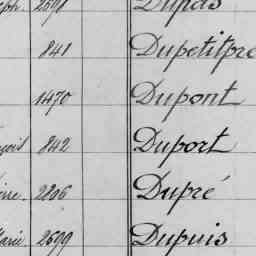 eph. 2691 Dupas
841 Dupetitpré
1470 Dupont
842 Duport
erre. 2206 Dupré
Marie 2699 Dupuis